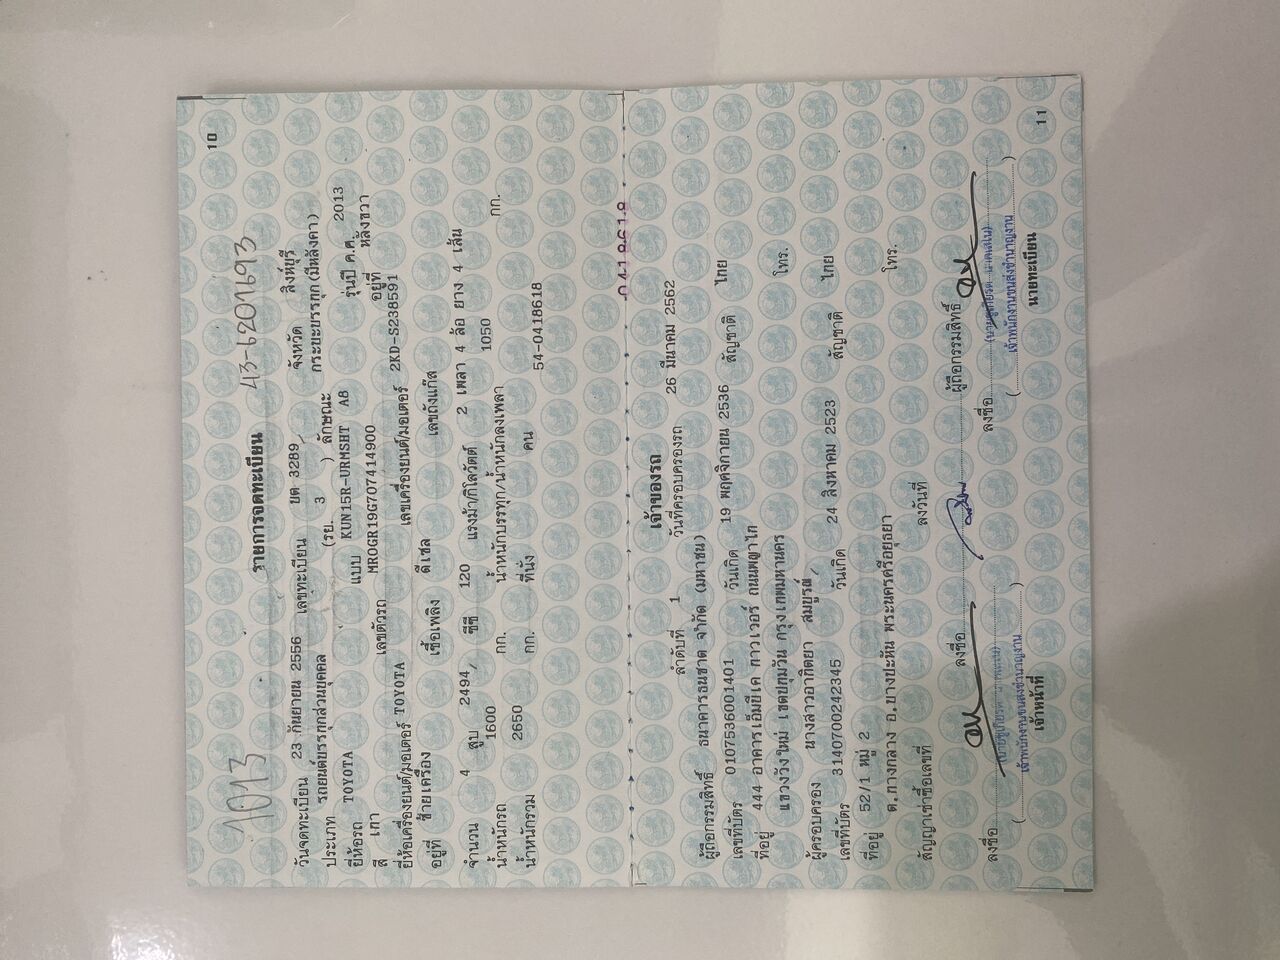 10
1013
43-6201693
รายการจดทะเบียน
วันจดทะเบียน 23 กันยายน 2556 เลขทะเบียน ยต 3289 จังหวัด สิงห์บุรี
ประเภท รถยนต์บรรทุกส่วนบุคคล (รย. 3 ) ลักษณะ กระบะบรรทุก(มีหลังคา)
ยี่ห้อรถ TOYOTA แบบ KUN15R-URMSHT A8 รุ่นปี ค.ศ. 2013
สี เทา เลขตัวรถ MROGR19G707414900 อยู่ที่ หลังขวา
ยี่ห้อเครื่องยนต์/มอเตอร์ TOYOTA เลขเครื่องยนต์/มอเตอร์ 2KD-S238591
อยู่ที่ ซ้ายเครื่อง เชื้อเพลิง ดีเซล เลขถังแก๊ส
จำนวน 4 สูบ 2494 ซีซี 120 แรงม้า/กิโลวัตต์ 2 เพลา 4 ล้อ ยาง 4 เส้น
น้ำหนักรถ 1600 กก. น้ำหนักบรรทุก/น้ำหนักลงเพลา 1050 กก.
น้ำหนักรวม 2650 กก. ที่นั่ง คน 54-0418618
0418618
เจ้าของรถ
ลำดับที่ 1 วันที่ครอบครองรถ 26 มีนาคม 2562
ผู้ถือกรรมสิทธิ์ ธนาคารธนชาต จำกัด (มหาชน)
เลขที่บัตร 0107536001401 วันเกิด 19 พฤศจิกายน 2536 สัญชาติ ไทย
ที่อยู่ 444 อาคารเอ็มบีเค ทาวเวอร์ ถนนพญาไท
แขวงวังใหม่ เขตปทุมวัน กรุงเทพมหานคร โทร.
ผู้ครอบครอง นางสาวอาทิตยา สมบูรณ์
เลขที่บัตร 3140700242345 วันเกิด 24 สิงหาคม 2523 สัญชาติ ไทย
ที่อยู่ 52/1 หมู่ 2
ต.ทางกลาง อ.บางปะหัน พระนครศรีอยุธยา โทร.
สัญญาเช่าซื้อเลขที่ ลงวันที่
ลงชื่อ ผู้ถือกรรมสิทธิ์
ลงชื่อ ลงชื่อ
เจ้าพนักงานขนส่งชำนาญงาน เจ้าพนักงานขนส่งชำนาญงาน
เจ้าหน้าที่ นายทะเบียน
11